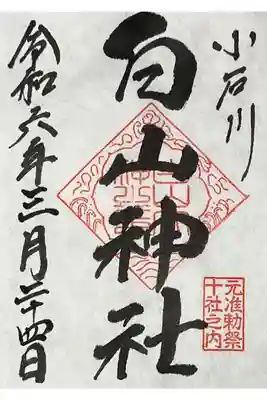 小石川
白山神社
元准勅祭
十社之内
令和六年三月二十四日